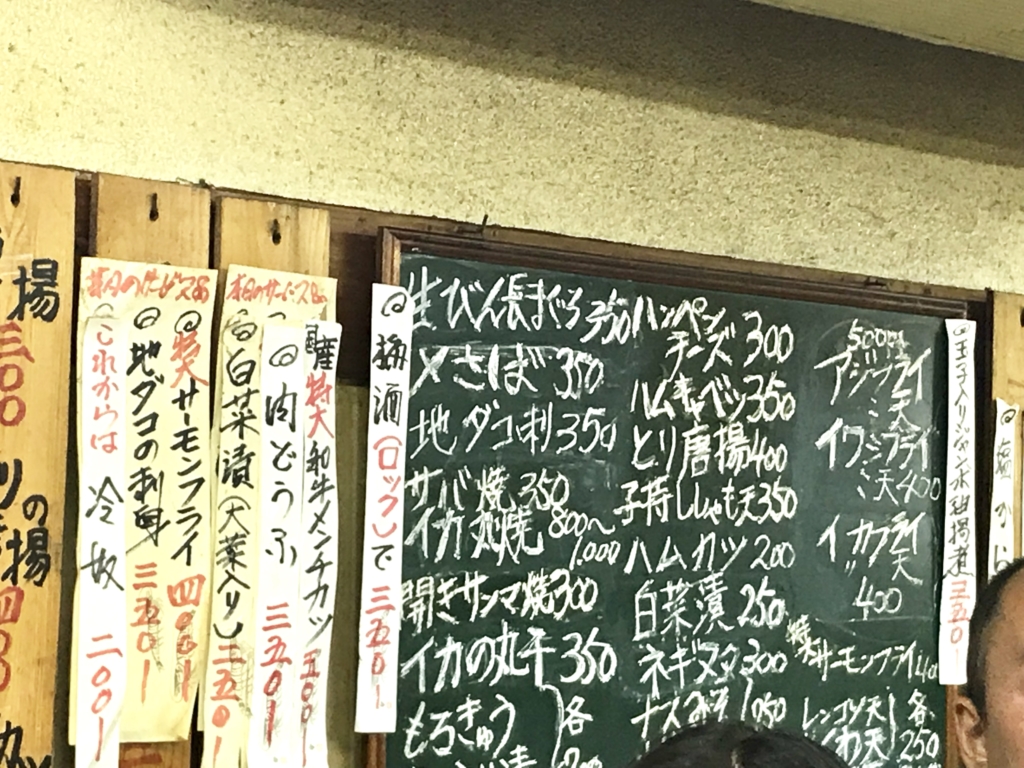 揚
三〇〇
の揚
四〇〇
本日のサービス品
これからは 冷奴 二〇〇
地ダコの刺身 三五〇
特大サーモンフライ 四〇〇
本日のサービス品
白菜漬(大葉入り) 二五〇
肉どうふ 三五〇
国産特大和牛メンチカツ 五〇〇
梅酒(ロック)で 三五〇
生びん長まぐろ 350
〆さば 350
地ダコ刺 350
サバ焼 350
イカ丸焼 800〜1,000
開きサンマ焼 300
イカの丸干 350
もろきゅう 各
ハンペンチーズ 300
ハムキャベツ 350
とり唐揚 400
子持ししゃも天 350
ハムカツ 200
白菜漬 250
ネギヌタ 300
ナス
500円
アジフライ
〃天
イワシフライ
〃天 400
イカフライ
〃天
400
特大サーモンフライ 40
レンコン天 各
天 250
玉子入りジャンボ袋揚煮 三五〇
塩から